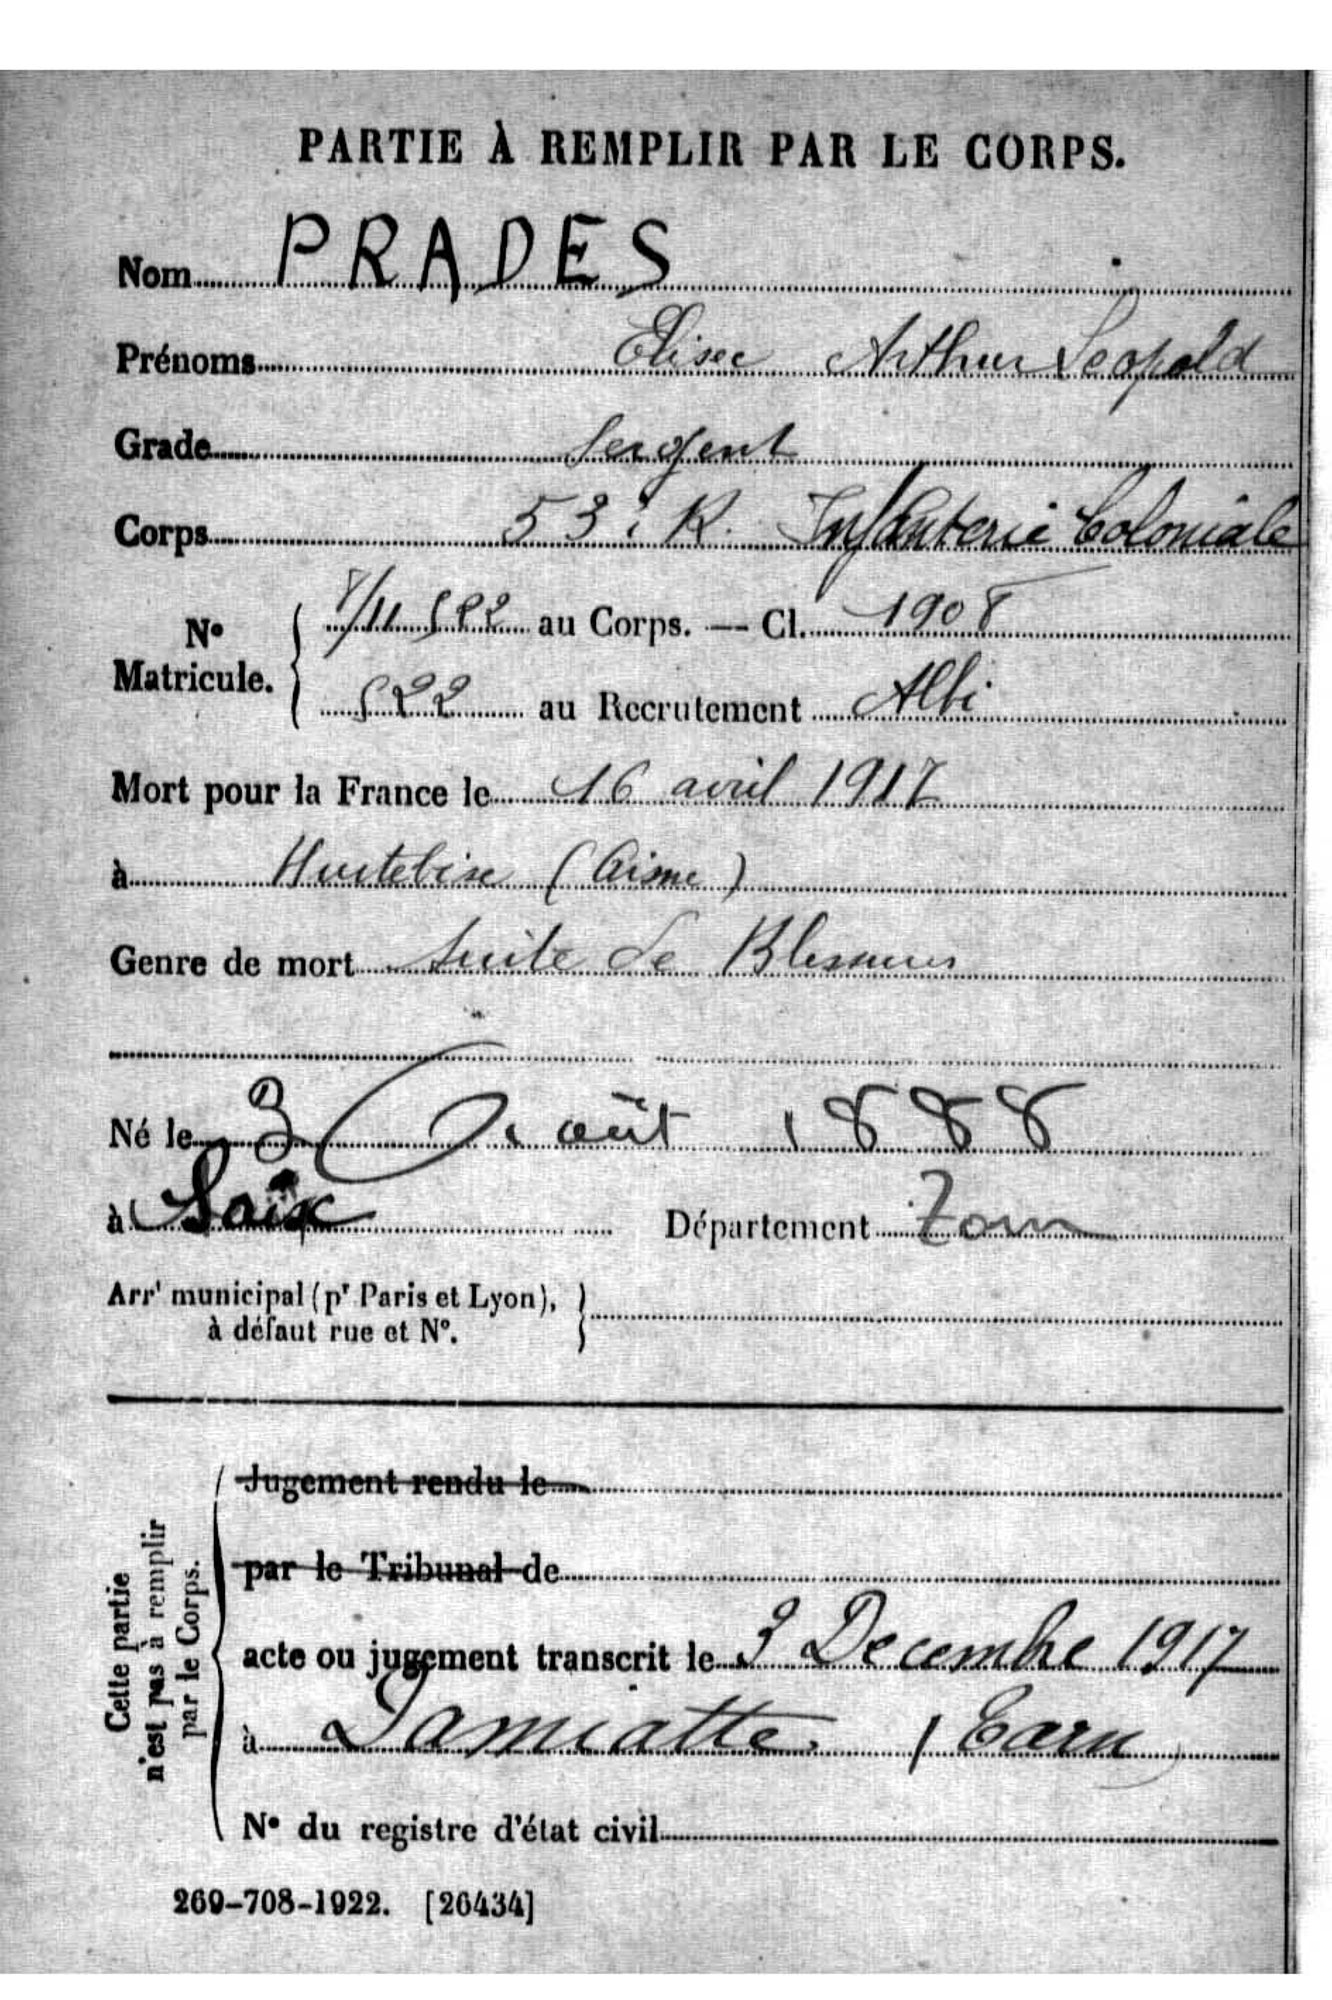 PARTIE À REMPLIR PAR LE CORPS.
Nom PRADES
Prénoms Elisée Arthur Léopold
Grade Sergent
Corps 53e R. Infanterie Coloniale
N° Matricule. 522 au Corps. — Cl. 1908
522 au Recrutement Albi
Mort pour la France le 16 avril 1917
à Hurtebise (Aisne)
Genre de mort Suite de Blessures
Né le 3 Août 1888
à Saïx Département Tarn
Arrt municipal (pr Paris et Lyon),
à défaut rue et N°.
Cette partie
n'est pas à remplir
par le Corps.
Jugement rendu le
par le Tribunal de
acte ou jugement transcrit le 3 Decembre 1917
à Damiatte (Tarn)
N° du registre d'état civil
269-708-1922. [26434]